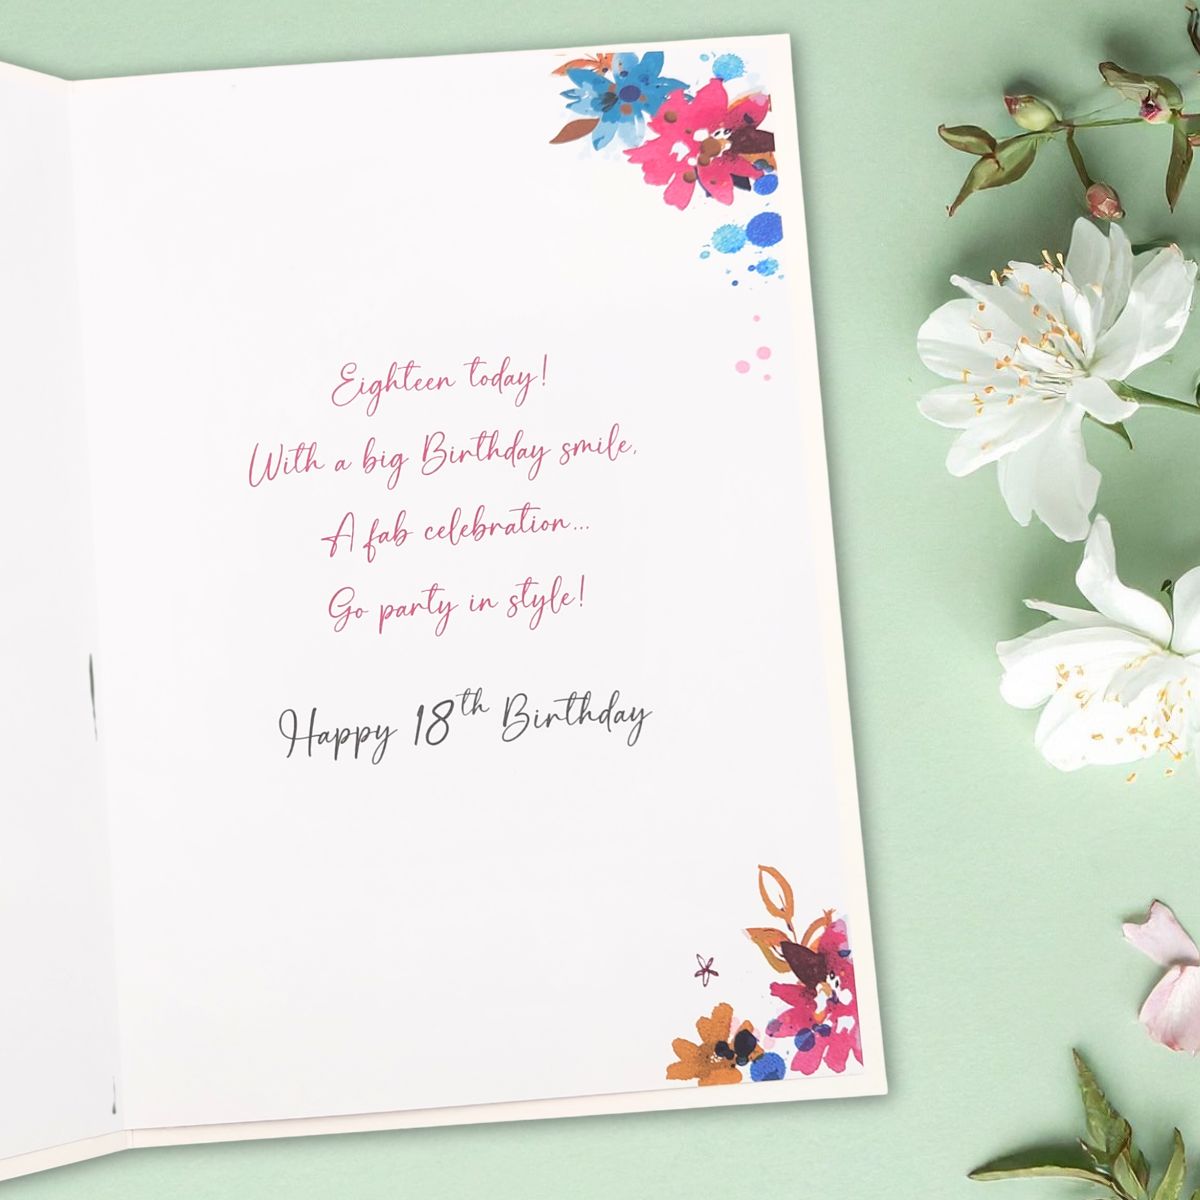 Eighteen today!
With a big Birthday smile,
A fab celebration...
Go party in style!
Happy 18th Birthday